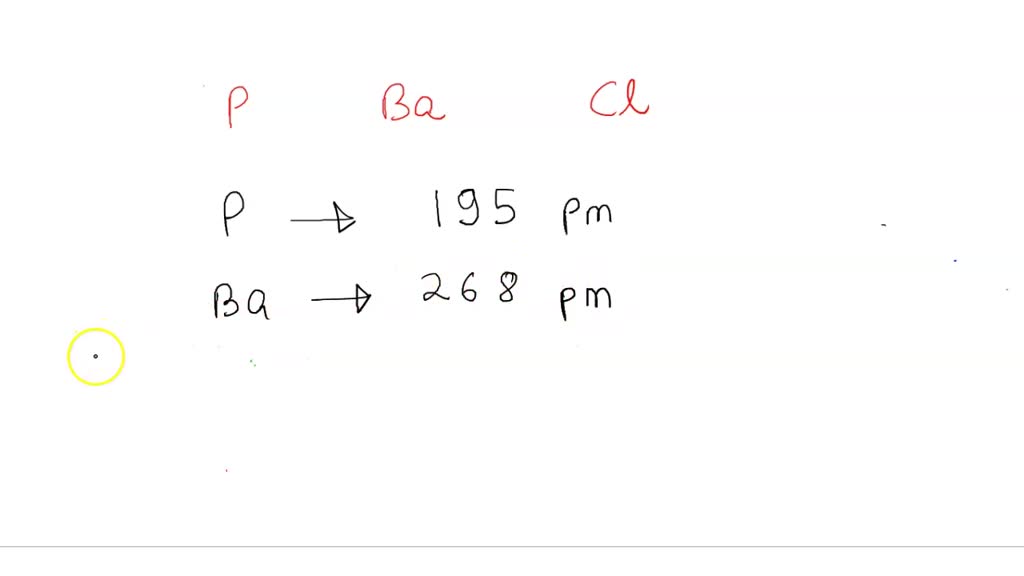 P Ba Cl
P → 195 pm
Ba → 268 pm